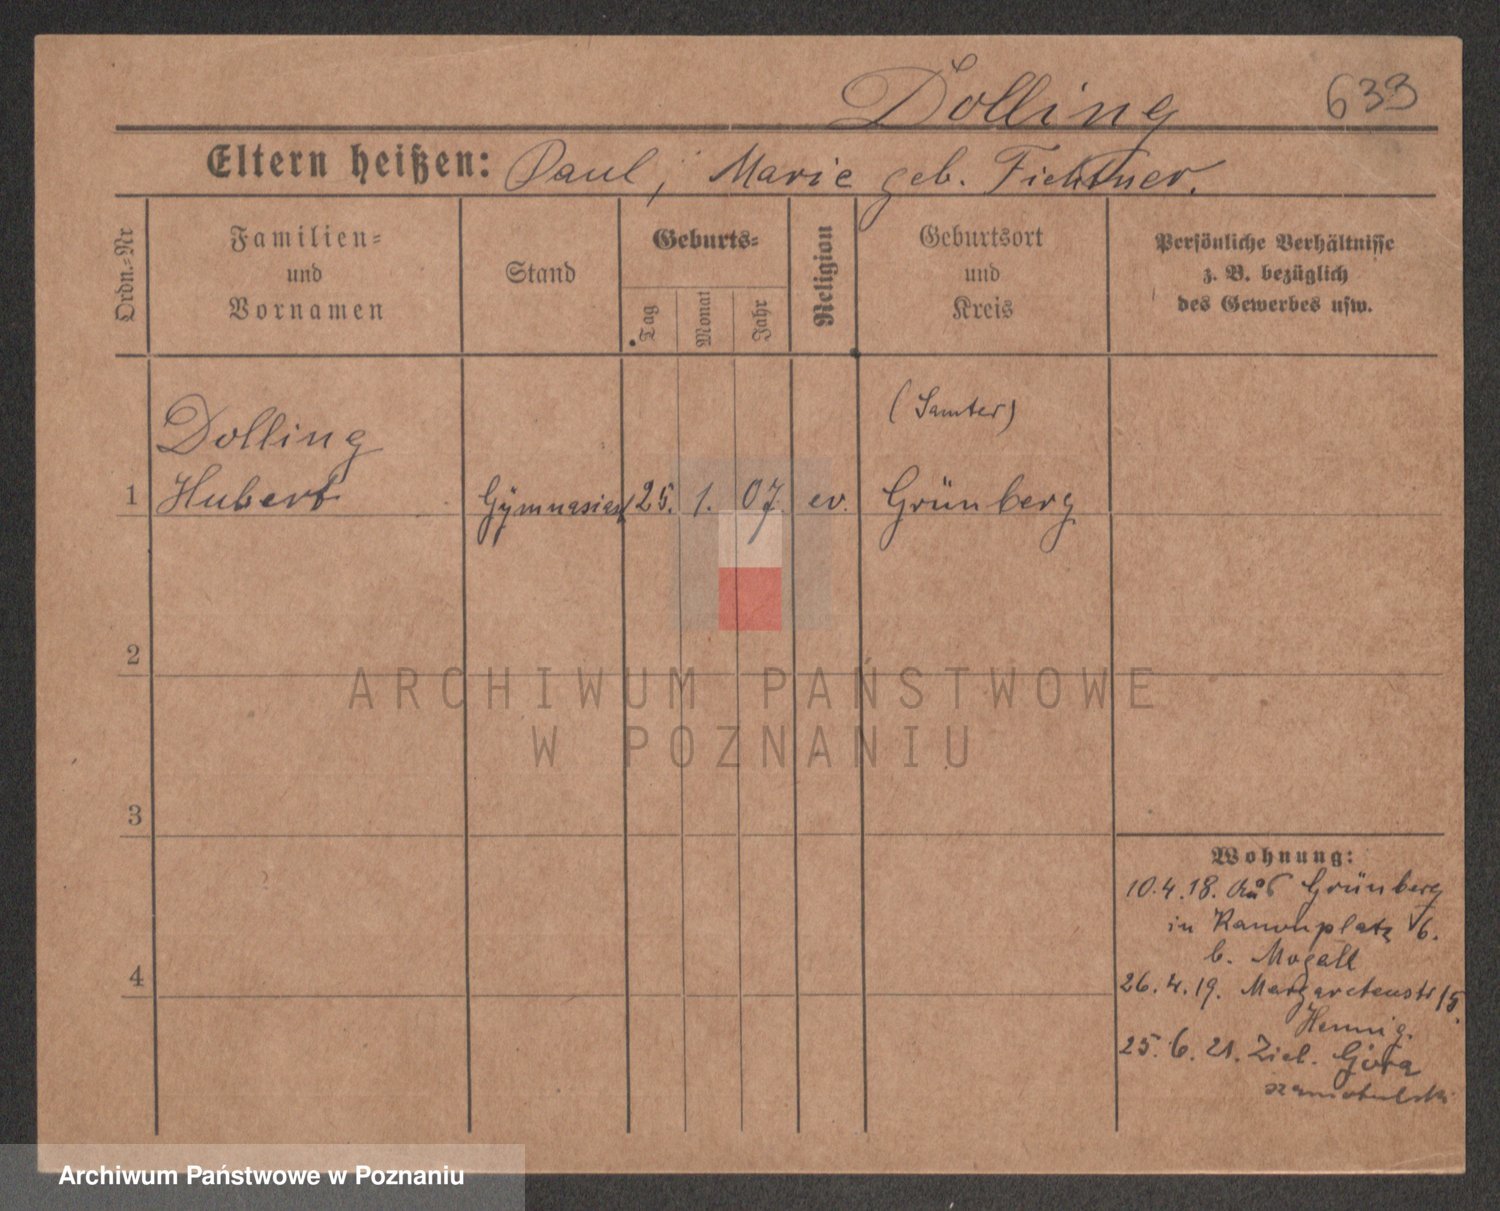 Dolling 633
Eltern heißen: Paul, Marie geb. Fichtner.
Ordn.-Nr
Familien-
und
Vornamen
Stand
Geburts-
Tag
Monat
Jahr
Religion
Geburtsort
und
Kreis
Persönliche Verhältnisse
z. B. bezüglich
des Gewerbes usw.
Dolling (Samter)
1 Hubert Gymnasiast 25. 1. 07. ev. Grünberg
2
3
4
Wohnung:
10.4.18. Grünberg
in Kanonplatz 6.
b. Mogall
26.4.19. Margaretenstr 15.
Hennig.
25.6.21. Ziel. Góra
szamotulski
ARCHIWUM PAŃSTWOWE
W POZNANIU
Archiwum Państwowe w Poznaniu